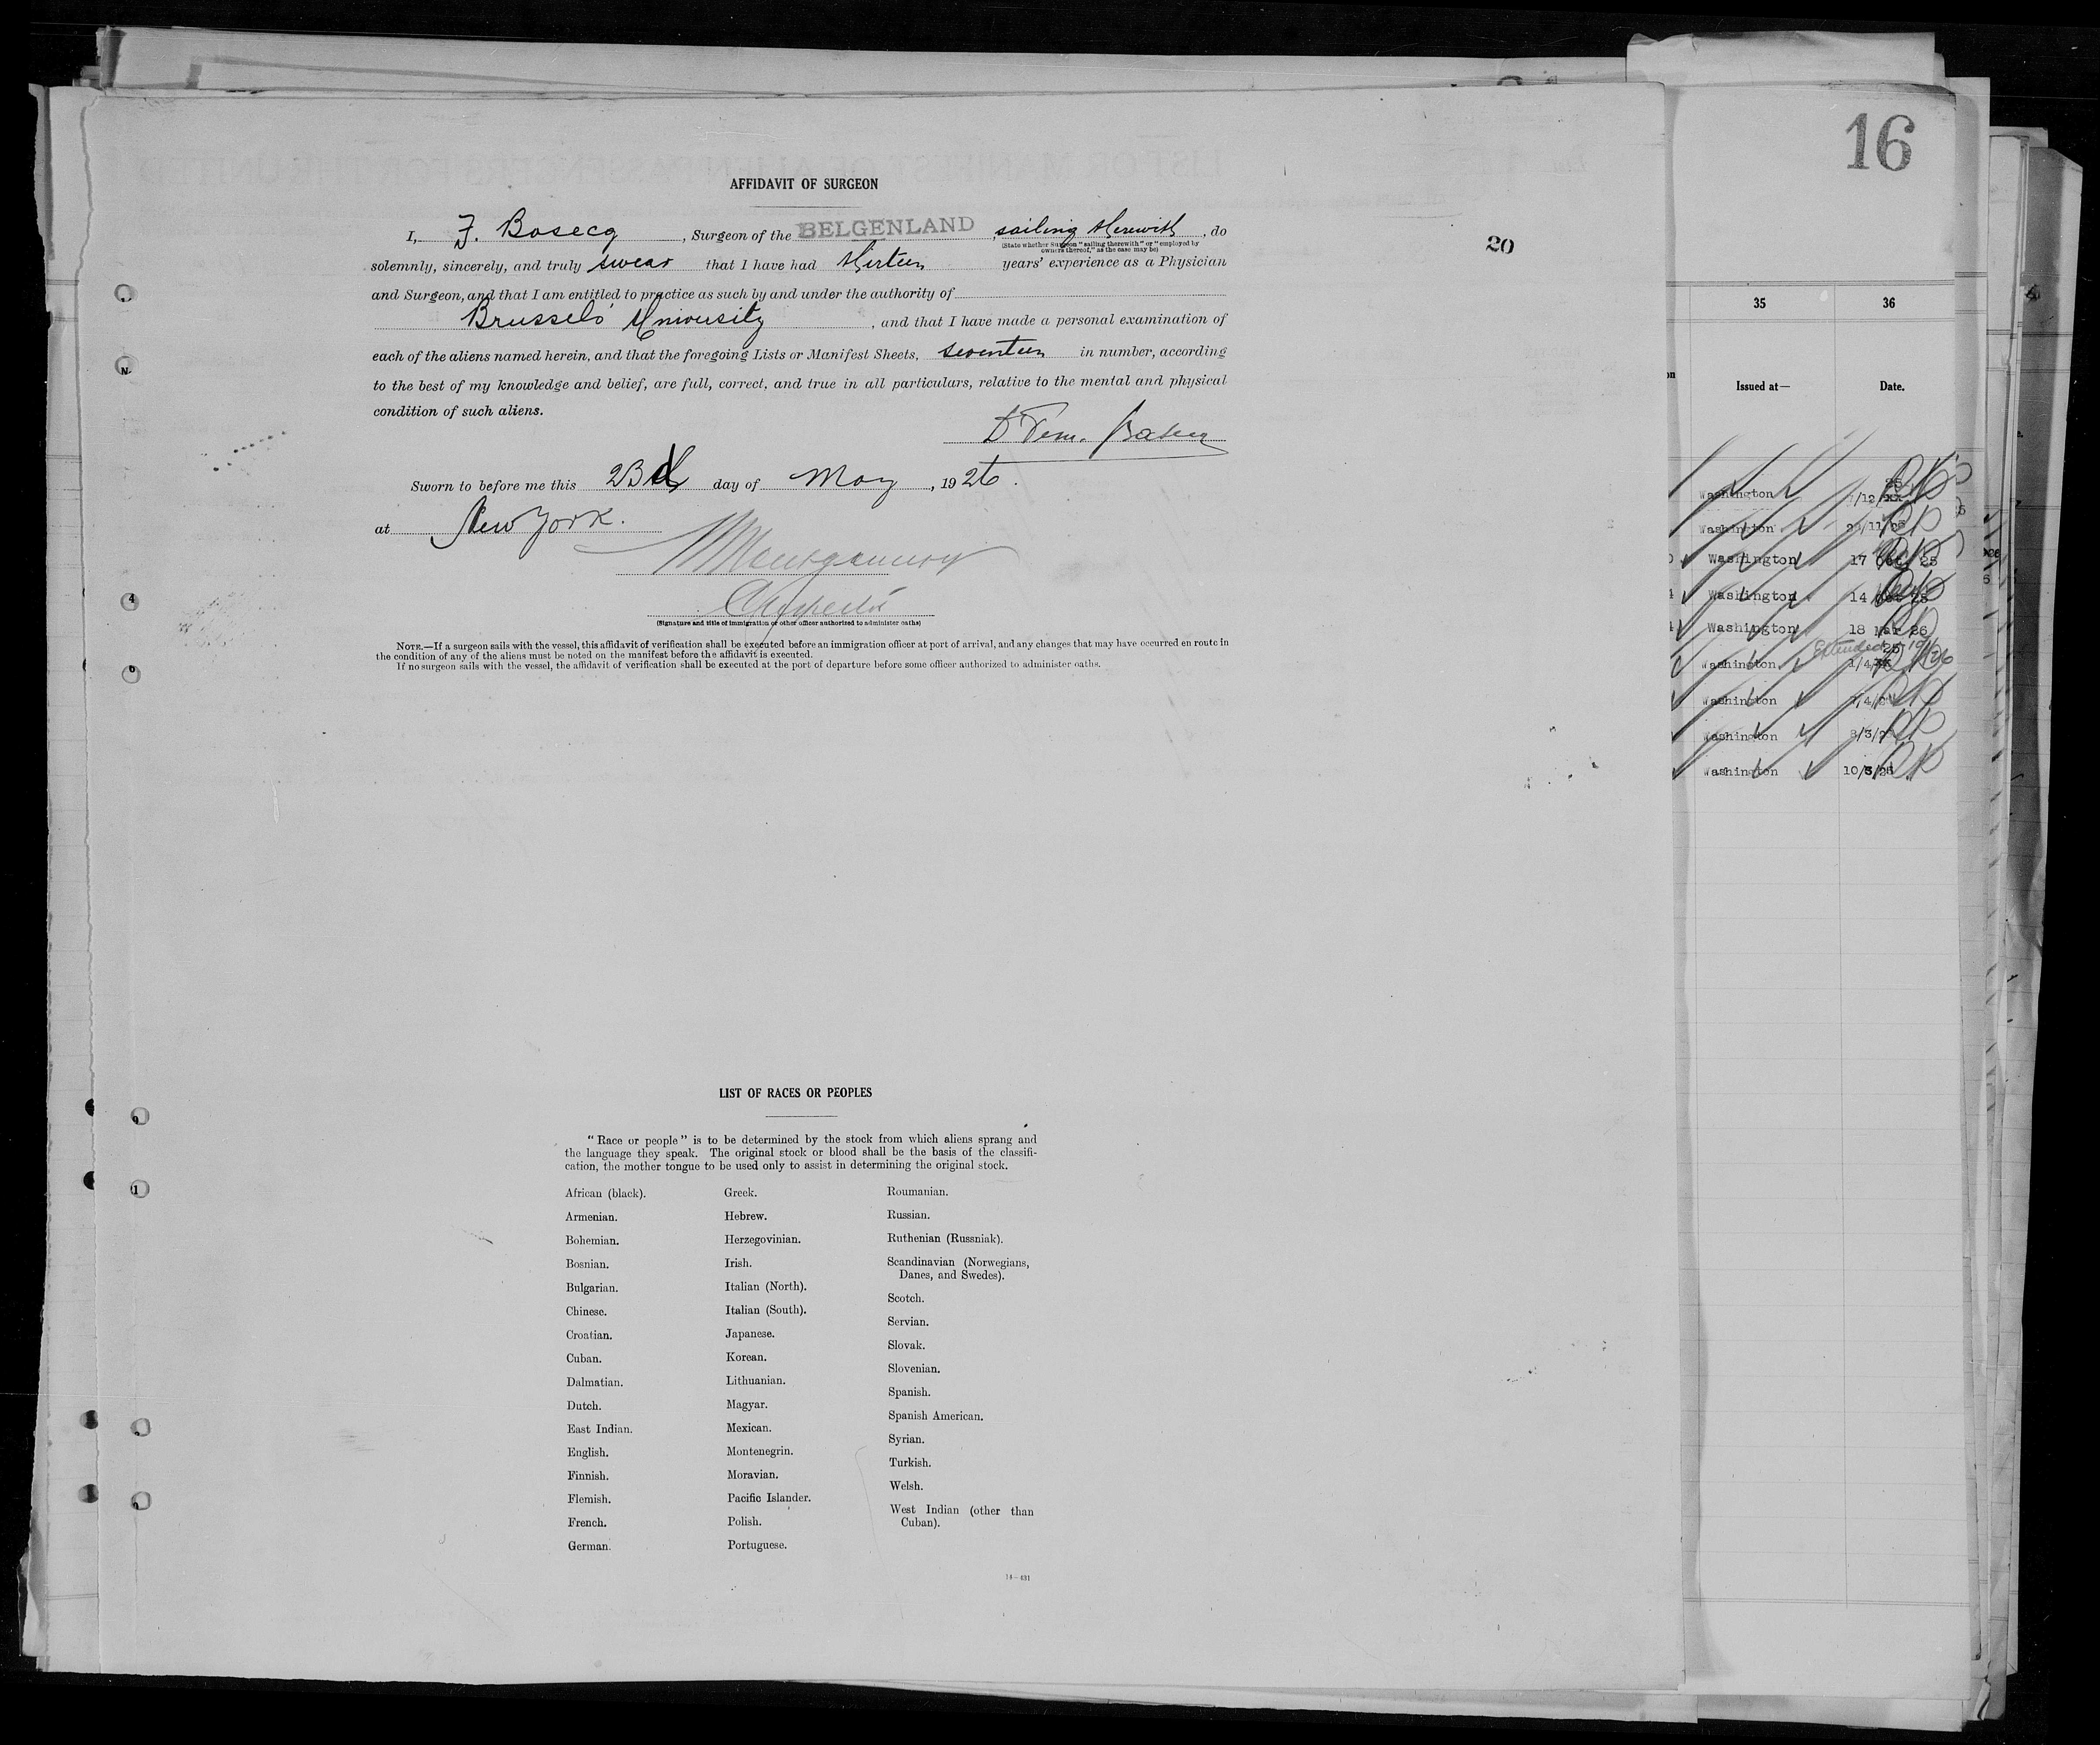 16
AFFIDAVIT OF SURGEON
I, F. Bosecq, Surgeon of the BELGENLAND, sailing therewith, do
(State whether Surgeon "sailing therewith" or "employed by
owners thereof," as the case may be)
20
solemnly, sincerely, and truly swear that I have had thirteen years' experience as a Physician
and Surgeon, and that I am entitled to practice as such by and under the authority of
Brussels University, and that I have made a personal examination of
each of the aliens named herein, and that the foregoing Lists or Manifest Sheets, seventeen in number, according
to the best of my knowledge and belief, are full, correct, and true in all particulars, relative to the mental and physical
condition of such aliens.
Sworn to before me this 23d day of May, 1926.
at New York.
Montgomery
(Signature and title of immigration or other officer authorized to administer oaths)
NOTE.—If a surgeon sails with the vessel, this affidavit of verification shall be executed before an immigration officer at port of arrival, and any changes that may have occurred en route in
the condition of any of the aliens must be noted on the manifest before the affidavit is executed.
If no surgeon sails with the vessel, the affidavit of verification shall be executed at the port of departure before some officer authorized to administer oaths.
35 36
Issued at— Date.
Washington
Washington
Washington 17
Washington 14
Washington 18 Mar 26
Extended
Washington
Washington
Washington
Washington
LIST OF RACES OR PEOPLES
"Race or people" is to be determined by the stock from which aliens sprang and
the language they speak. The original stock or blood shall be the basis of the classifi-
cation, the mother tongue to be used only to assist in determining the original stock.
African (black).
Armenian.
Bohemian.
Bosnian.
Bulgarian.
Chinese.
Croatian.
Cuban.
Dalmatian.
Dutch.
East Indian.
English.
Finnish.
Flemish.
French.
German.
Greek.
Hebrew.
Herzegovinian.
Irish.
Italian (North).
Italian (South).
Japanese.
Korean.
Lithuanian.
Magyar.
Mexican.
Montenegrin.
Moravian.
Pacific Islander.
Polish.
Portuguese.
Roumanian.
Russian.
Ruthenian (Russniak).
Scandinavian (Norwegians,
Danes, and Swedes).
Scotch.
Servian.
Slovak.
Slovenian.
Spanish.
Spanish American.
Syrian.
Turkish.
Welsh.
West Indian (other than
Cuban).